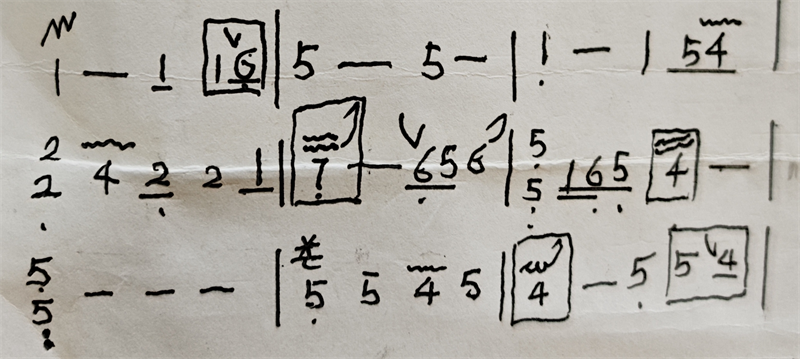 1 — 1 16 | 5 — 5 — | 1 — 1 54 |
2 2 4 2 2 1 | 7 — 6 5 6 | 5 5 1 6 5 4 — |
5 5 — — — | 5 5 4 5 | 4 — 5 5 4 |